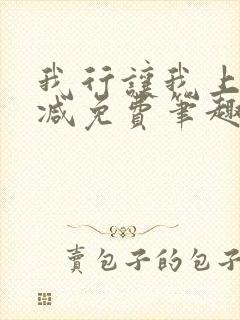 我行讓我上
减免費筆趣
賣包子的包子